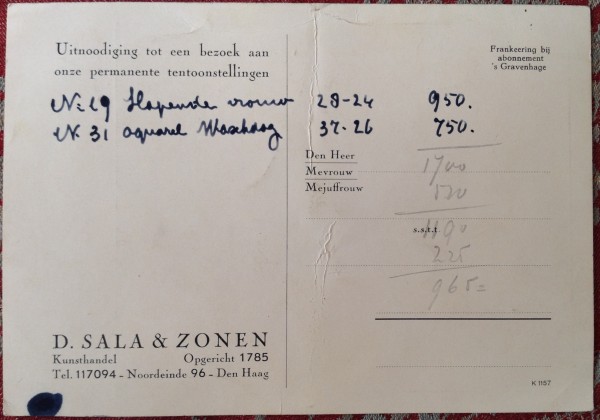 Uitnoodiging tot een bezoek aan
onze permanente tentoonstellingen
Frankeering bij
abonnement
's Gravenhage
N: 19 Slapende vrouw 28-24 950.
N. 31 aquarel 37-26 750.
Den Heer
Mevrouw
Mejuffrouw
1700
s.s.t.t.
225
965=
D. SALA & ZONEN
Kunsthandel Opgericht 1785
Tel. 117094 - Noordeinde 96 - Den Haag
K 1157